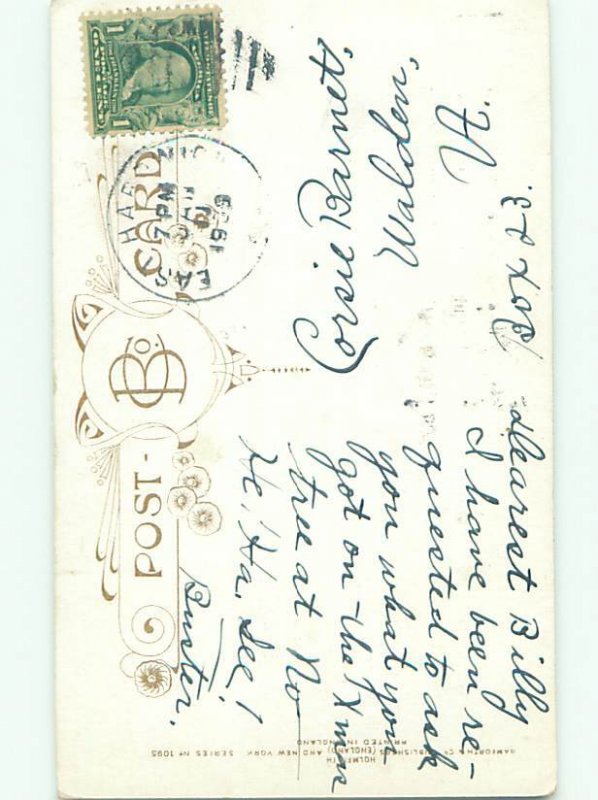 POST-CARD
B Co.
1
7 PM
JAN
1909
Dearest Billy
I have been re-
quested to ask
you what you
got on the Xmas
tree at No —
He, Ha, See!
Buster.
Corsie Barnet,
Walden,
Vt.
Box 23.
BAMFORTH & Co PUBLISHERS (ENGLAND) AND NEW YORK SERIES No 1095
HOLMFIRTH
PRINTED IN ENGLAND